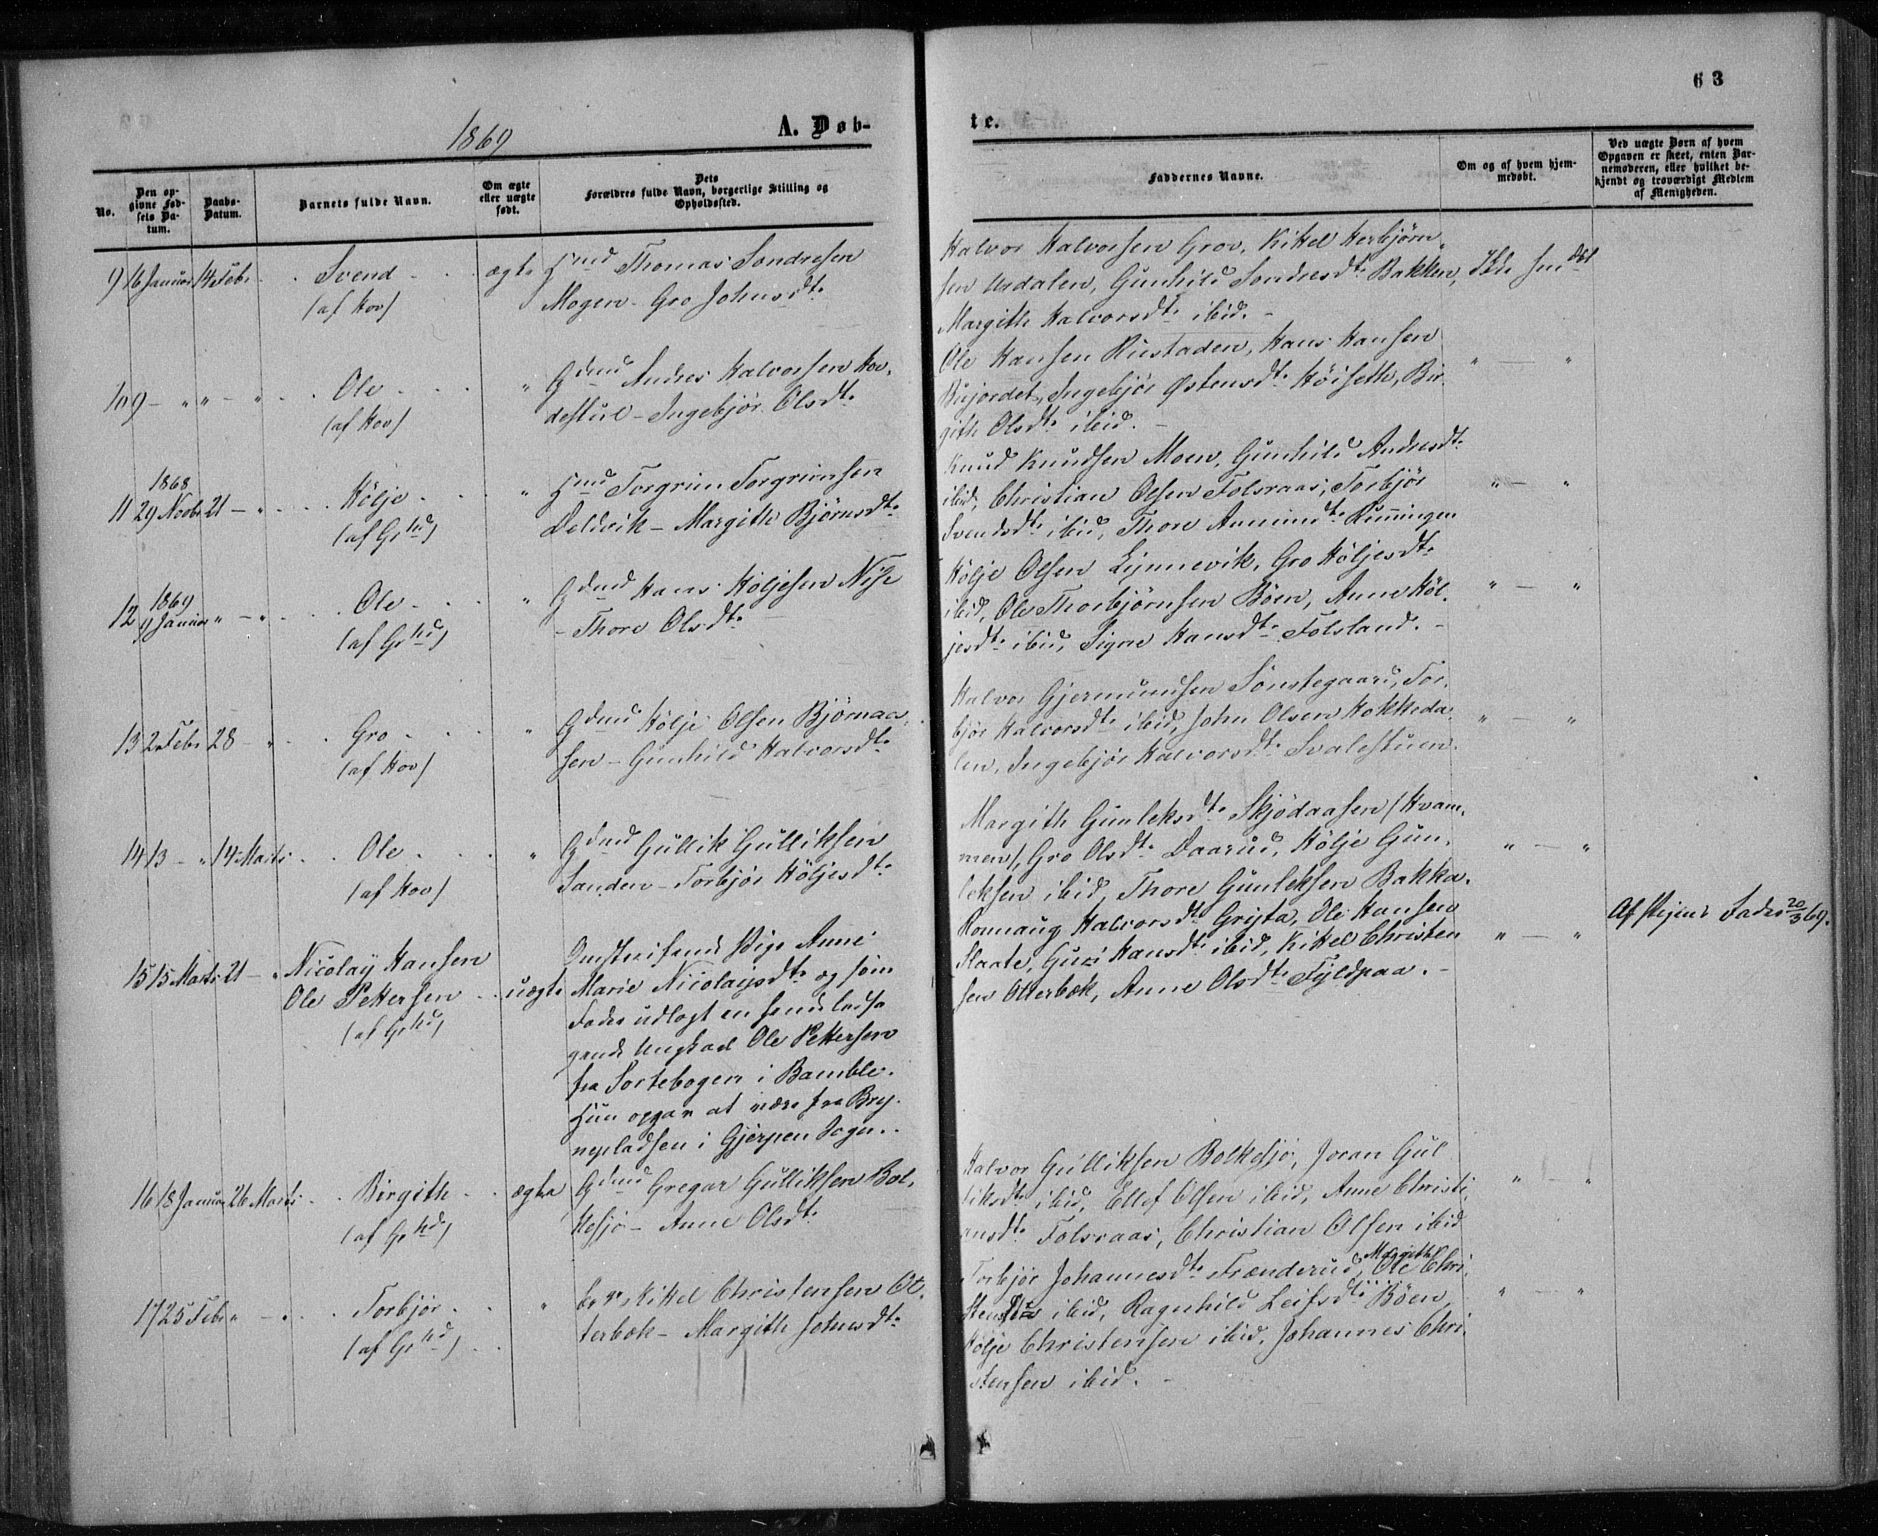 63
1869
A. Døb-
te.
No.
Den op-
givne Fød-
sels Da-
tum.
Daabs-
Datum.
Barnets fulde Navn.
Om ægte
eller uægte
født.
Dets
Forældres fulde Navn, borgerlige Stilling og
Opholdssted.
Faddernes Navne.
Om og af hvem hjem-
medøbt.
Ved uægte Børn af hvem
Opgaven er skeet, enten Bar-
nemoderen, eller hvilket be-
kjendt og troværdigt Medlem
af Menigheden.
9 16 Januar 14 Febr. Svend ægte Hmd Thomas Sondresen
(af Hov) Mogen - Gro Johnsdt.
Halvor Halvorsen Grov, Kittel Herbjørn-
sen Usdalen, Gunhild Sondresdt. Bakken, Ikke hmdbt
Margith Halvorsdt. ibid. -
10 9 - " " - " Ole " Gdmd Andres Halvorsen Hov-
(af Hov) destul - Ingebjør Olsdt.
Ole Hansen Rustaden, Hans Hansen
Bujordet, Ingebjør Østensdt. Höiseth, Bir- " - "
gith Olsdt. ibid. -
1868
11 29 Novbr 21 - " Hölje " Hmd Torgrim Torgrimsen
(af Grhd) Deldvik - Margith Björnsdt.
Knud Knudsen Moen, Gunhild Andresdt.
ibid, Christian Olsen Folsraas, Torbjör " - "
Svendsdt. ibid, Thore Anmundt. Runningen
1869
12 9 Januar " - " Ole " Gdmd Hans Höljesen Nise
(af Grhd) - Thore Olsdt. -
Hölje Olsen Lynnevik, Gro Höljesdt.
ibid, Ole Thorbjørnsen Böen, Anne Höl- " - "
jesdt. ibid, Signe Hansdt. Folsland. -
13 2 Febr 28 - " Gro " Gdmd Hölje Olsen Bjørnaa-
(af Hov) sen - Gunhild Halvorsdt.
Halvor Gjermundsen Sönstegaard, Tor-
bjør Halvorsdt. ibid, John Olsen Hokkeda- " - "
len, Ingebjör Halvorsdt. Svalestuen.
14 13 - " 14 Marts Ole " Gdmd Gullik Gulliksen
(af Hov) Sanden - Torbjör Höljesdt.
Margith Gunleksdt. Skjödaasen (Hvam-
men), Gro Olsdt. Daarud, Hölje Gun- " - "
leksen ibid, Thore Gunleksen Bakka.
15 15 Marts 21 - " Nicolay Hansen
Ole Pettersen uægte
(af Grhd)
Omstreifende Pige Anne
Marie Nicolaysdt. og som
Fader udlagt en hende ledsa
gende Ungkarl Ole Pettersen
fra Sortebogen i Bamble.
Hun opgav at være fra Bry-
nepladsen i Gjerpen Sogn. -
Ronnaug Halvorsdt. Grista, Ole Hansen
Flaate, Guri Hansdt. ibid, Kittel Christen " - "
sen Otterbæk, Anne Olsdt. Fyldpaa. -
Af Pigens Fader 20/3 69.
16 18 Januar 26 Marts Birgith ægte Gdmd Gregar Gulliksen Bol-
(af Grhd) kesjö - Anne Olsdt.
Halvor Gulliksen Bolkesjö, Joran Gul
liksdt. ibid, Ellef Olsen ibid, Anne Christi- " - "
ansdt. Folsraas, Christian Olsen ibid
17 25 Febr " - " Torbjör " Kittel Christensen Ot-
(af Grhd) terbæk - Margith Johnsdt.
Torbjör Johannesdt. Frænderud, Margith Ole Chri-
stensdt. ibid, Ragnhild Leifsdt. Böen " - "
Hölje Christensen ibid, Johannes Chri-
stensen ibid. -